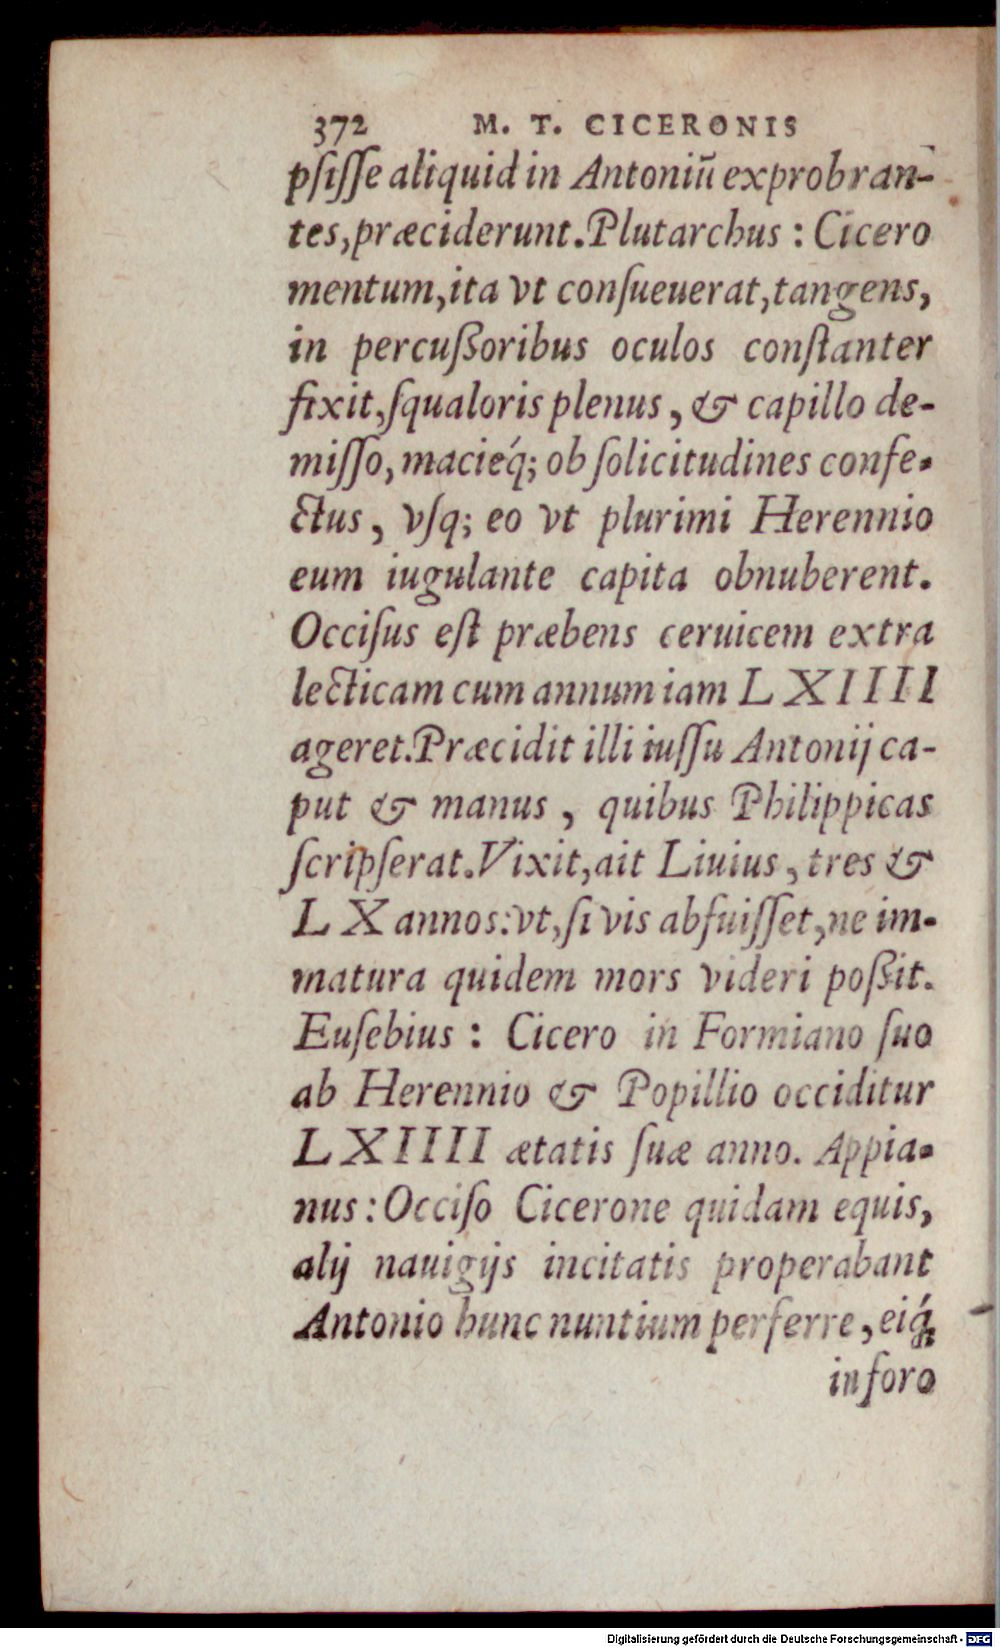 372 M. T. CICERONIS
pſiſſe aliquid in Antoniũ exprobran-
tes, præciderunt. Plutarchus : Cicero
mentum, ita vt conſueuerat, tangens,
in percußoribus oculos conſtanter
fixit, ſqualoris plenus, & capillo de-
miſſo, macieq́; ob ſolicitudines confe-
ctus, vſq; eo vt plurimi Herennio
eum iugulante capita obnuberent.
Occiſus eſt præbens ceruicem extra
lecticam cum annum iam LXIIII
ageret. Præcidit illi iuſſu Antonij ca-
put & manus, quibus Philippicas
ſcripſerat. Vixit, ait Liuius, tres &
LX annos: vt, ſi vis abfuiſſet, ne im-
matura quidem mors videri poßit.
Euſebius : Cicero in Formiano ſuo
ab Herennio & Popillio occiditur
LXIIII ætatis ſuæ anno. Appia-
nus : Occiſo Cicerone quidam equis,
alij nauigijs incitatis properabant
Antonio hunc nuntium perferre, eiq́;
in foro
Digitalisierung gefördert durch die Deutsche Forschungsgemeinschaft - DFG